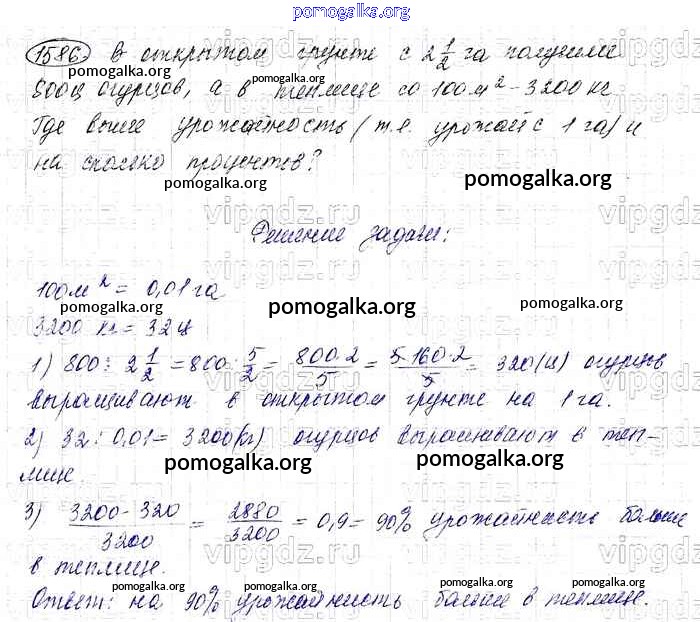 pomogalka.org
1586. В открытом грунте с 2 1/2 га получили
pomogalka.org pomogalka.org
800ц огурцов, а в теплице со 100м² - 3200 кг
Где выше урожайность (т.е. урожай с 1 га) и
на сколько процентов?
pomogalka.org pomogalka.org
vipgdz.ru vipgdz.ru vipgdz.ru
Решение задачи:
100м² = 0,01 га
pomogalka.org pomogalka.org pomogalka.org
3200 кг = 32 ц
1) 800 : 2 1/2 = 800 : 5/2 = 800·2/5 = 5·160·2/5 = 320 (ц) огурцов
выращивают в открытом грунте на 1 га.
2) 32 : 0,01 = 3200 (кг) огурцов выращивают в теп-
лице.
pomogalka.org pomogalka.org
3) 3200-320/3200 = 2880/3200 = 0,9 = 90% урожайность больше
в теплице.
pomogalka.org pomogalka.org pomogalka.org
Ответ: на 90% урожайность больше в теплице.